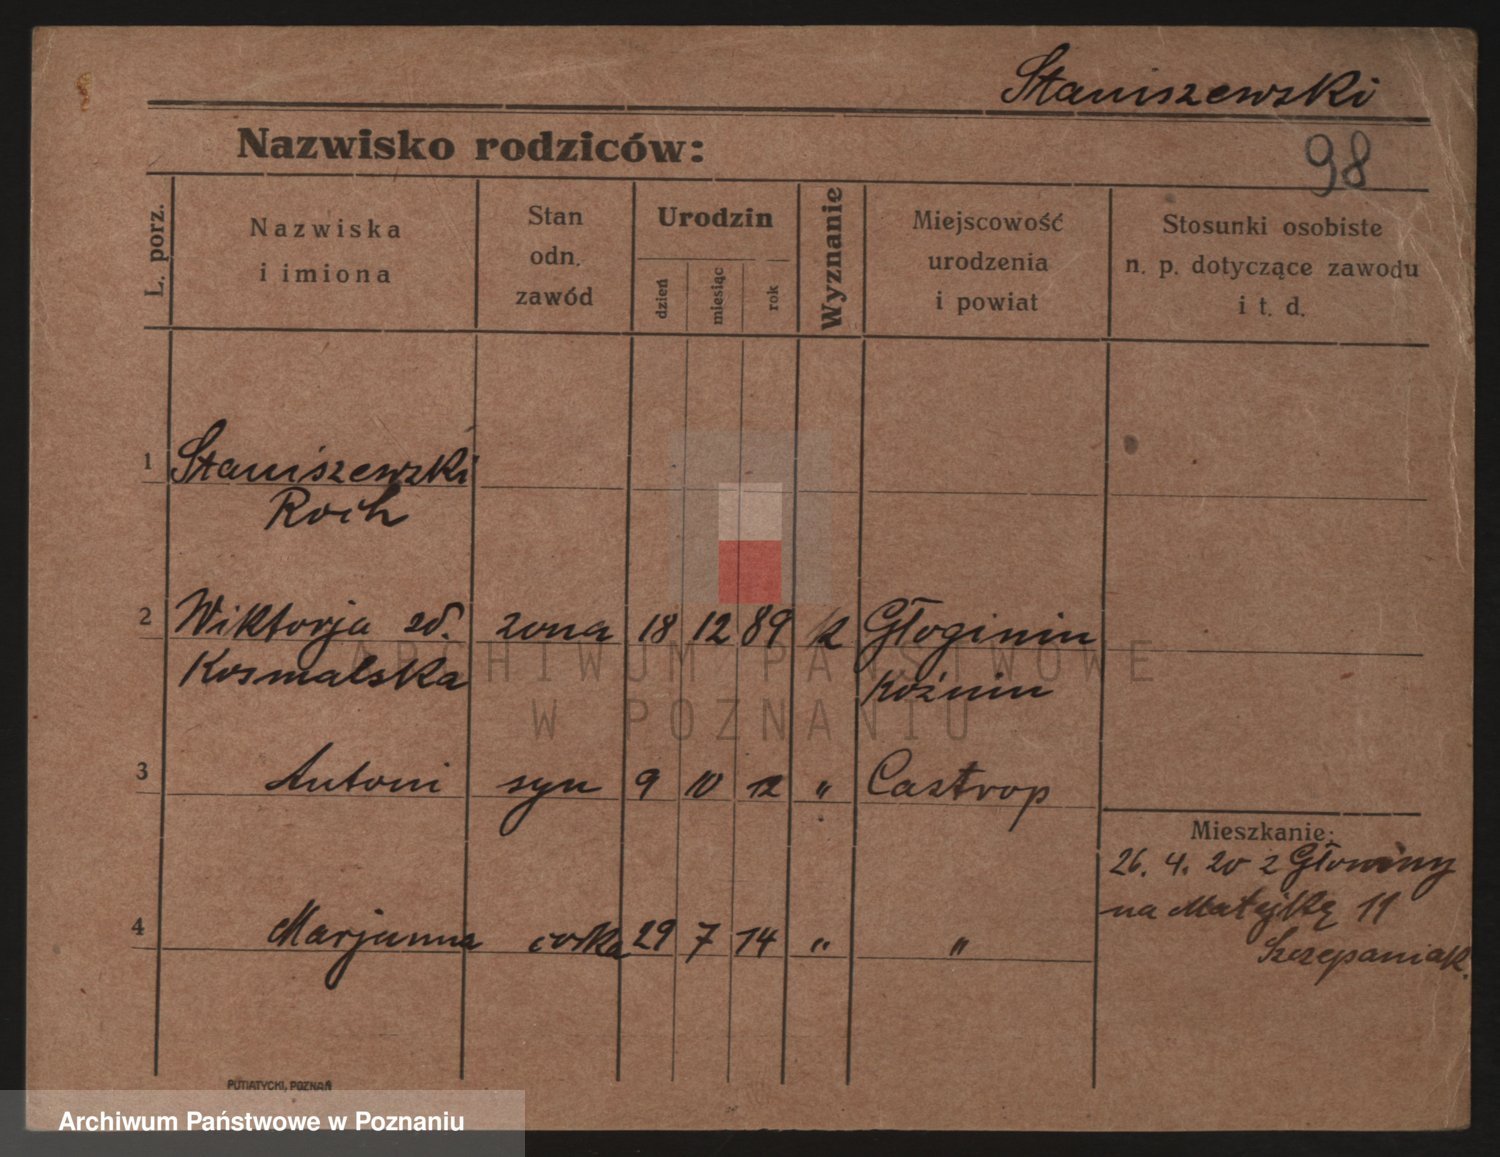 Staniszewski
98
Nazwisko rodziców:
L. porz.
Nazwiska
i imiona
Stan
odn.
zawód
Urodzin
dzień
miesiąc
rok
Wyznanie
Miejscowość
urodzenia
i powiat
Stosunki osobiste
n. p. dotyczące zawodu
i t. d.
1 Staniszewski
Roch
2 Wiktorja zd. żona 18 12 89 k Głoginin
Kosmalska Koźmin
3 Antoni syn 9 10 12 " Castrop
4 Marjanna córka 29 7 14 " "
Mieszkanie:
26. 4. 20 z Głowiny
na Matejkę 11
Szczepaniak.
PUTIATYCKI, POZNAŃ
ARCHIWUM PAŃSTWOWE
W POZNANIU
Archiwum Państwowe w Poznaniu